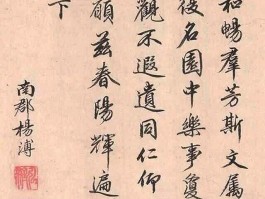 和暢羣芳斯文屬
名園中樂事
觀不遐遺同仁仰
願茲春陽輝遍
下
南郡楊溥